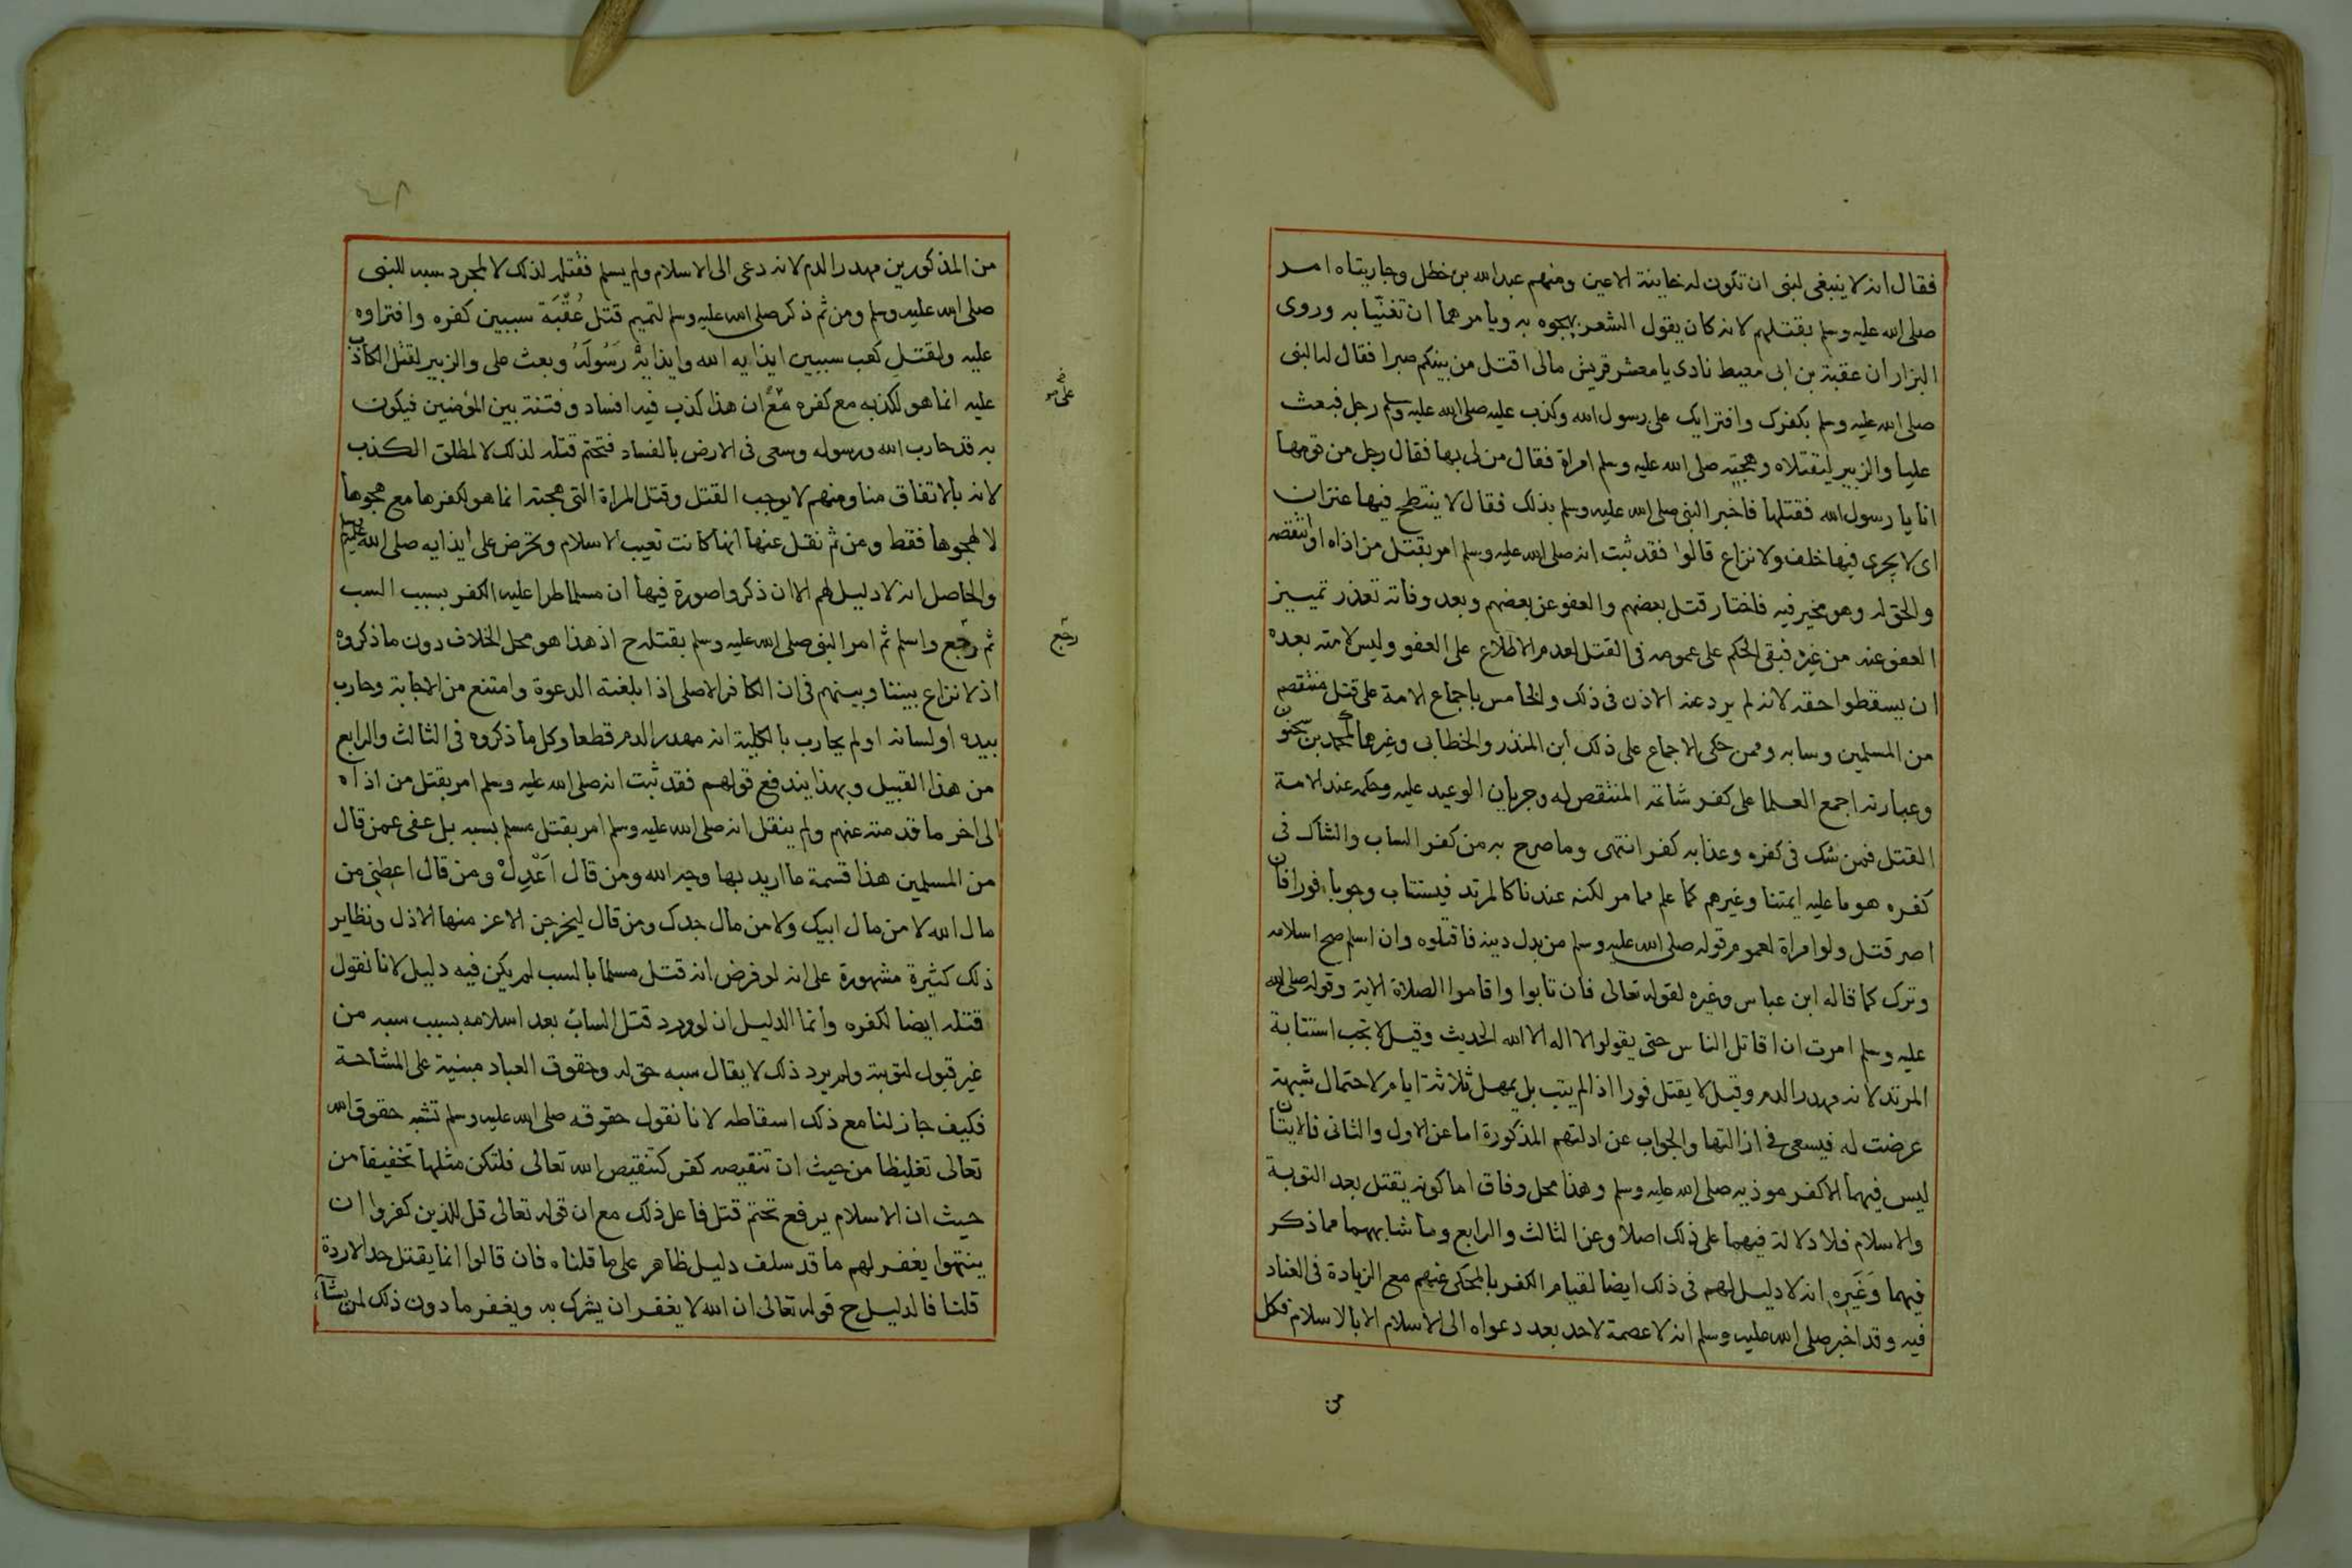 فقال انه لا ينبغى لنبى ان تكون له خاينة الاعين ومنهم عبد الله بن خطل وجاريتاه امر
صلى الله عليه وسلم بقتلهم لانه كان يقول الشعر يهجوه به ويامرهما ان تغنيا به وروى
البزار ان عقبة بن ابى معيط نادى يا معشر قريش مالى اقتل من بينكم صبرا فقال له النبى
صلى الله عليه وسلم بكفرك وافترايك على رسول الله وكذب عليه صلى الله عليه وسلم رجل فبعث
عليا والزبير ليقتلاه وهجته صلى الله عليه وسلم امراة فقال من لى بها فقال رجل من قومها
انا يا رسول الله فقتلها فاخبر النبى صلى الله عليه وسلم بذلك فقال لا ينتطح فيها عنزان
اى لا يجرى فيها خلف ولا نزاع قالوا فقد ثبت انه صلى الله عليه وسلم امر بقتل من اذاه او تنقصه
والحق له وهو مخير فيه فاختار قتل بعضهم والعفو عن بعضهم وبعد وفاته تعذر تمييز
العفو عنه من غيره فبقى الحكم على عمومه فى القتل لعدم الاطلاع على العفو وليس لامته بعده
ان يسقطوا حقه لانه لم يرد عنه الاذن فى ذلك والخامس باجماع الامة على قتل منتقصه
من المسلمين وسابه وممن حكى الاجماع على ذلك ابن المنذر والخطابى وغيرهما كمحمد بن سحنون
وعبارته اجمع العلما على كفر شاتمه المنتقص له وجريان الوعيد عليه وحكمه عند الامة
القتل فمن شك فى كفره وعذابه كفر انتهى وما صرح به من كفر الساب والشاك فى
كفره هو ما عليه ايمتنا وغيرهم كما علم مما مر لكنه عندنا كالمرتد فيستتاب وجوبا فورا فان
اصر قتل ولو امراة لعموم قوله صلى الله عليه وسلم من بدل دينه فاقتلوه وان اسلم صح اسلامه
وترك كما قاله ابن عباس وغيره لقوله تعالى فان تابوا واقاموا الصلاة الاية وقوله صلى الله
عليه وسلم امرت ان اقاتل الناس حتى يقولوا لا اله الا الله الحديث وقيل لا تجب استتابة
المرتد لانه مهدر الدم وقيل لا يقتل فورا اذا لم يتب بل يمهل ثلاثة ايام لاحتمال شبهة
عرضت له فيسعى فى ازالتها والجواب عن ادلتهم المذكورة اما عن الاول والثانى فالايتان
ليس فيهما الا كفر موذيه صلى الله عليه وسلم وهذا محل وفاق اما كونه يقتل بعد التوبة
والاسلام فلا دلالة فيهما على ذلك اصلا وعن الثالث والرابع وما شابههما مما ذكر
فيهما وغيره انه لا دليل لهم فى ذلك ايضا لقيام الكفر بالمحكى عنهم مع الزيادة فى العناد
فيه وقد اخبر صلى الله عليه وسلم انه لا عصمة لاحد بعد دعواه الى الاسلام الا بالاسلام فكل
من
من المذكورين مهدر الدم لانه دعى الى الاسلام ولم يسلم فقتله لذلك لا لمجرد سبه للنبى
صلى الله عليه وسلم ومن ثم ذكر صلى الله عليه وسلم لتميم قتل عقبة سببين كفره وافتراوه
عليه ولقتل كعب سببين ايذايه الله وايذايه رسوله وبعث على والزبير لقتل الكاذب
عليه انما هو لكذبه مع كفره مع ان هذا كذب فيه افساد وفتنة بين المؤمنين فيكون
به قد حارب الله ورسوله وسعى فى الارض بالفساد فتحتم قتله لذلك لا لمطلق الكذب
لانه بالاتفاق منا ومنهم لا يوجب القتل وقتل المراة التى هجته انما هو لكفرها مع هجوها
لا لهجوها فقط ومن ثم نقل عنها انها كانت تعيب الاسلام وتحرض على ايذايه صلى الله عليه وسلم
والحاصل انه لا دليل لهم الا ان ذكروا صورة فيها ان مسلما طرا عليه الكفر بسبب السب
ثم رجع واسلم ثم امر النبى صلى الله عليه وسلم بقتله ح اذ هذا هو محل الخلاف دون ما ذكروه
رجع
اذ لا نزاع بيننا وبينهم فى ان الكافر الاصلى اذا بلغته الدعوة وامتنع من الاجابة وحارب
بيده او لسانه او لم يحارب بالكلية انه مهدر الدم قطعا وكل ما ذكروه فى الثالث والرابع
من هذا القبيل وبهذا يندفع قولهم فقد ثبت انه صلى الله عليه وسلم امر بقتل من اذاه
الى اخر ما قدمته عنهم ولم ينقل انه صلى الله عليه وسلم امر بقتل مسلم بسبه بل عفى عمن قال
من المسلمين هذا قسمة ما اريد بها وجه الله ومن قال اعدل ومن قال اعطنى من
مال الله لا من مال ابيك ولا من مال جدك ومن قال ليخرجن الاعز منها الاذل ونظاير
ذلك كثيرة مشهورة على انه لو فرض انه قتل مسلما بالسب لم يكن فيه دليل لانا نقول
قتله ايضا لكفره وانما الدليل ان لو ورد قتل الساب بعد اسلامه بسبب سبه من
غير قبول لتوبته ولم يرد ذلك لا يقال سبه حق له وحقوق العباد مبنية على المشاحة
فكيف جاز لنا مع ذلك اسقاطه لانا نقول حقوقه صلى الله عليه وسلم تشبه حقوق الله
تعالى تغليظا من حيث ان تنقيصه كفر كتنقيص الله تعالى فلتكن مثلها تخفيفا من
حيث ان الاسلام يرفع تحتم قتل فاعل ذلك مع ان قوله تعالى قل للذين كفروا ان
ينتهوا يغفر لهم ما قد سلف دليل ظاهر على ما قلناه فان قالوا انما يقتل حدا لا ردة
قلنا فالدليل ح قوله تعالى ان الله لا يغفر ان يشرك به ويغفر ما دون ذلك لمن يشاء